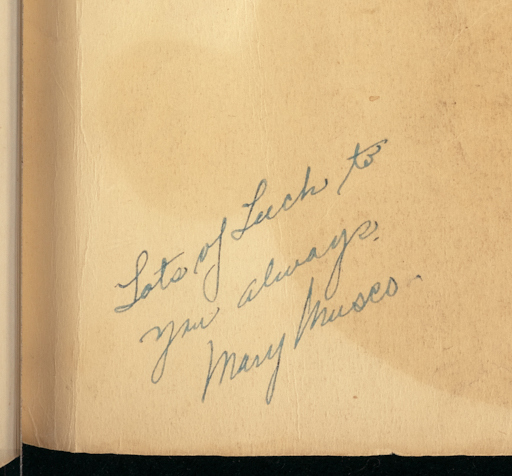 Lots of Luck to
you always.
Mary Musco.